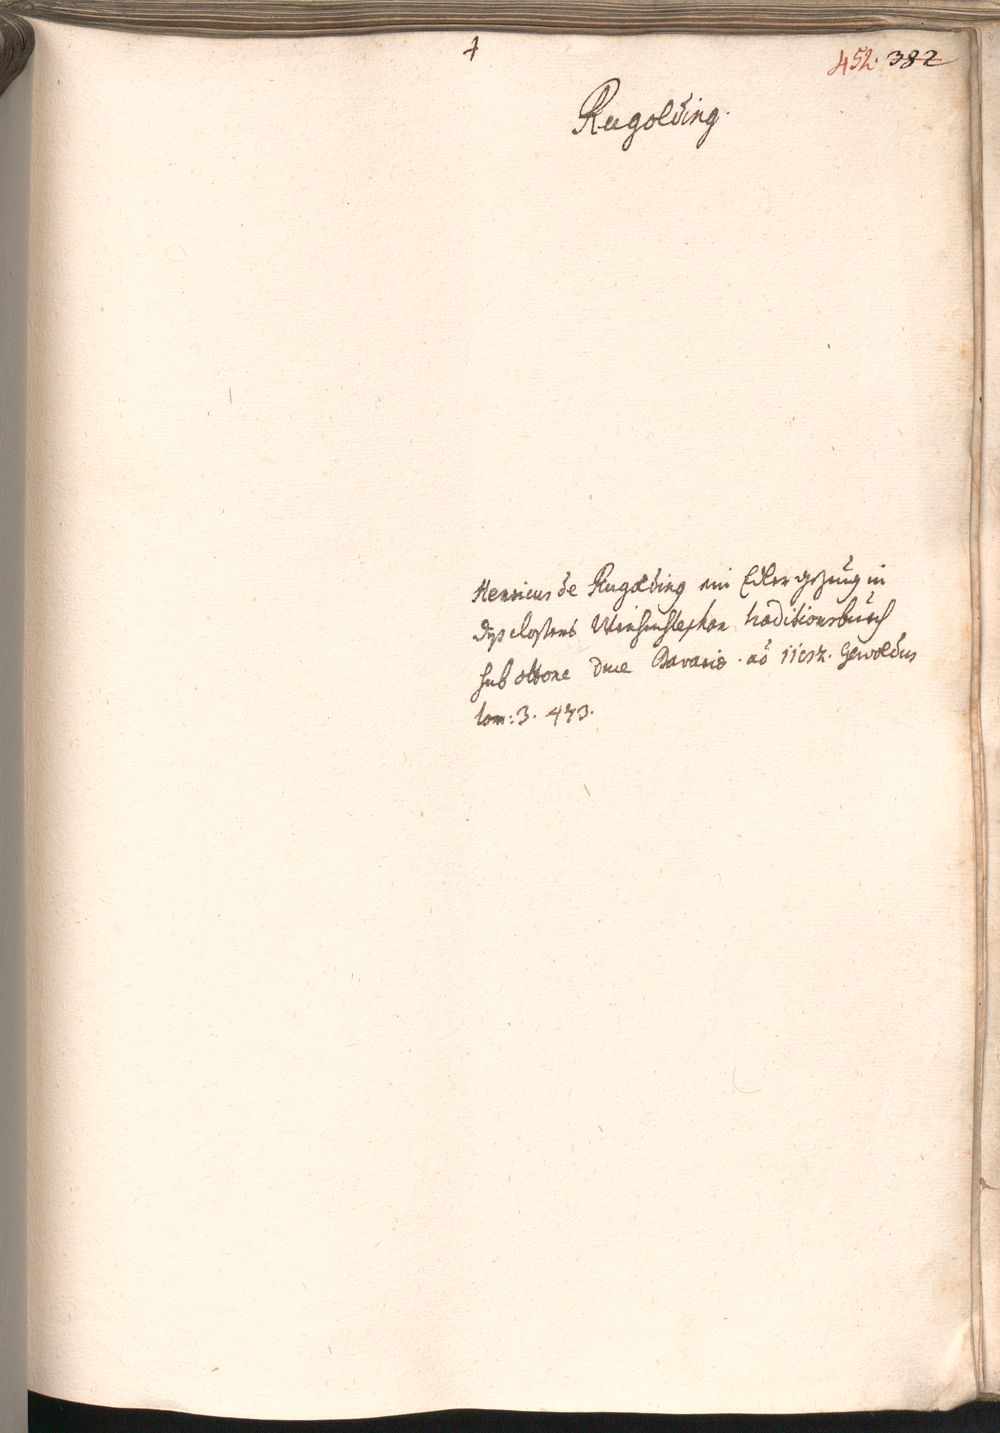 452. 382
Rugolding.
Henricus de Rugolding ein Edler gezeug in
deß closters Weichenstephan traditionsbuech
sub ottone duce Bavariæ. aō
Gewoldus
tom: 3. 473.